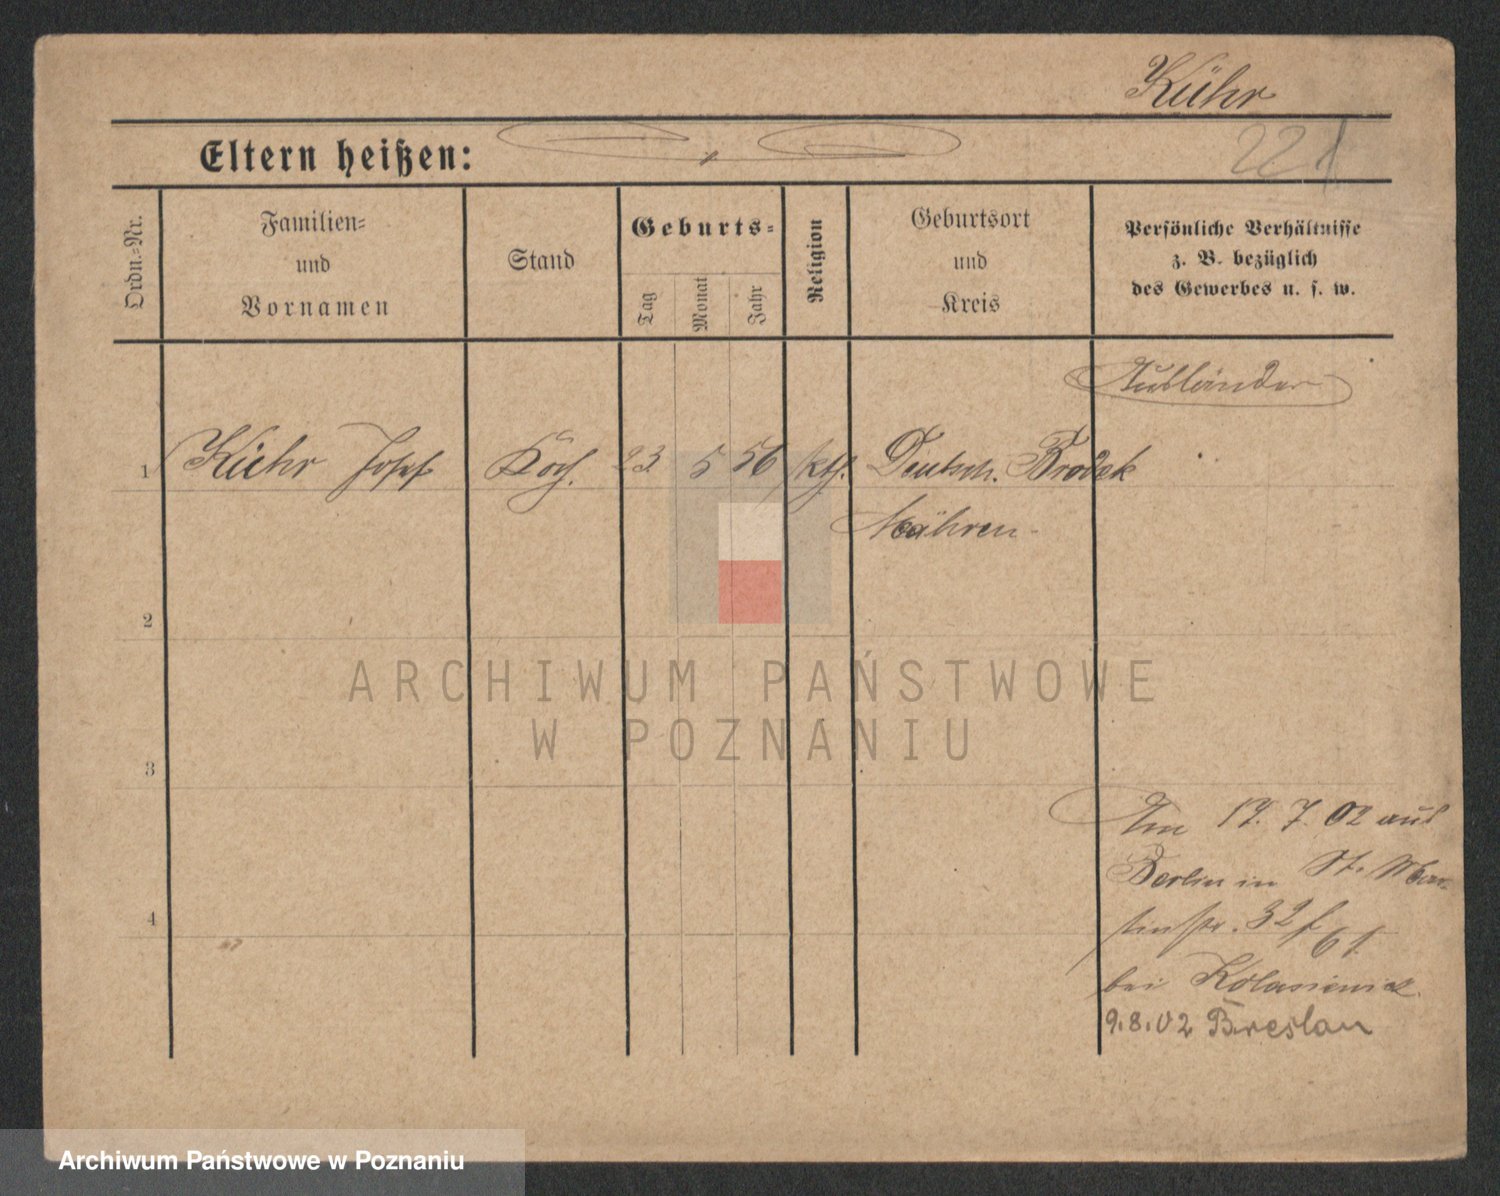 Kühr
Eltern heißen:
221
Ordn.-Nr.
Familien-
und
Vornamen
Stand
Geburts-
Tag
Monat
Jahr
Religion
Geburtsort
und
Kreis
Persönliche Verhältnisse
z. B. bezüglich
des Gewerbes u. s. w.
Ausländer
1 Kühr Josef Koch. 23. 5 56 kth. Deutsch. Brodek
Mähren
2
3
4
Am 17. 7. 02 aus
Berlin in St. Mar-
tinstr. 32
bei Kolasiewicz
9.8.02 Breslau
ARCHIWUM PAŃSTWOWE
W POZNANIU
Archiwum Państwowe w Poznaniu